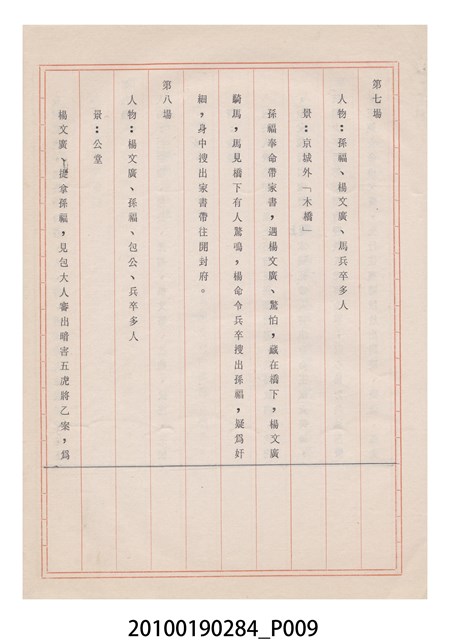 第七場
人物：孫福、楊文廣、馬兵卒多人
景：京城外「木橋」
孫福奉命帶家書，遇楊文廣、驚怕，藏在橋下，楊文廣
騎馬，馬見橋下有人驚鳴，楊命令兵卒搜出孫福，疑為奸
細，身中搜出家書帶往開封府。
第八場
人物：楊文廣、孫福、包公、兵卒多人
景：公堂
楊文廣、提拿孫福，見包大人審出暗害五虎將乙案，為
20100190284_P009